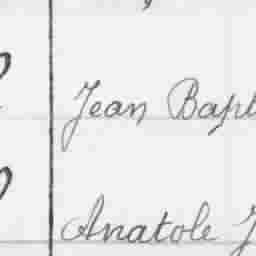 Jean Bapt
Anatole J